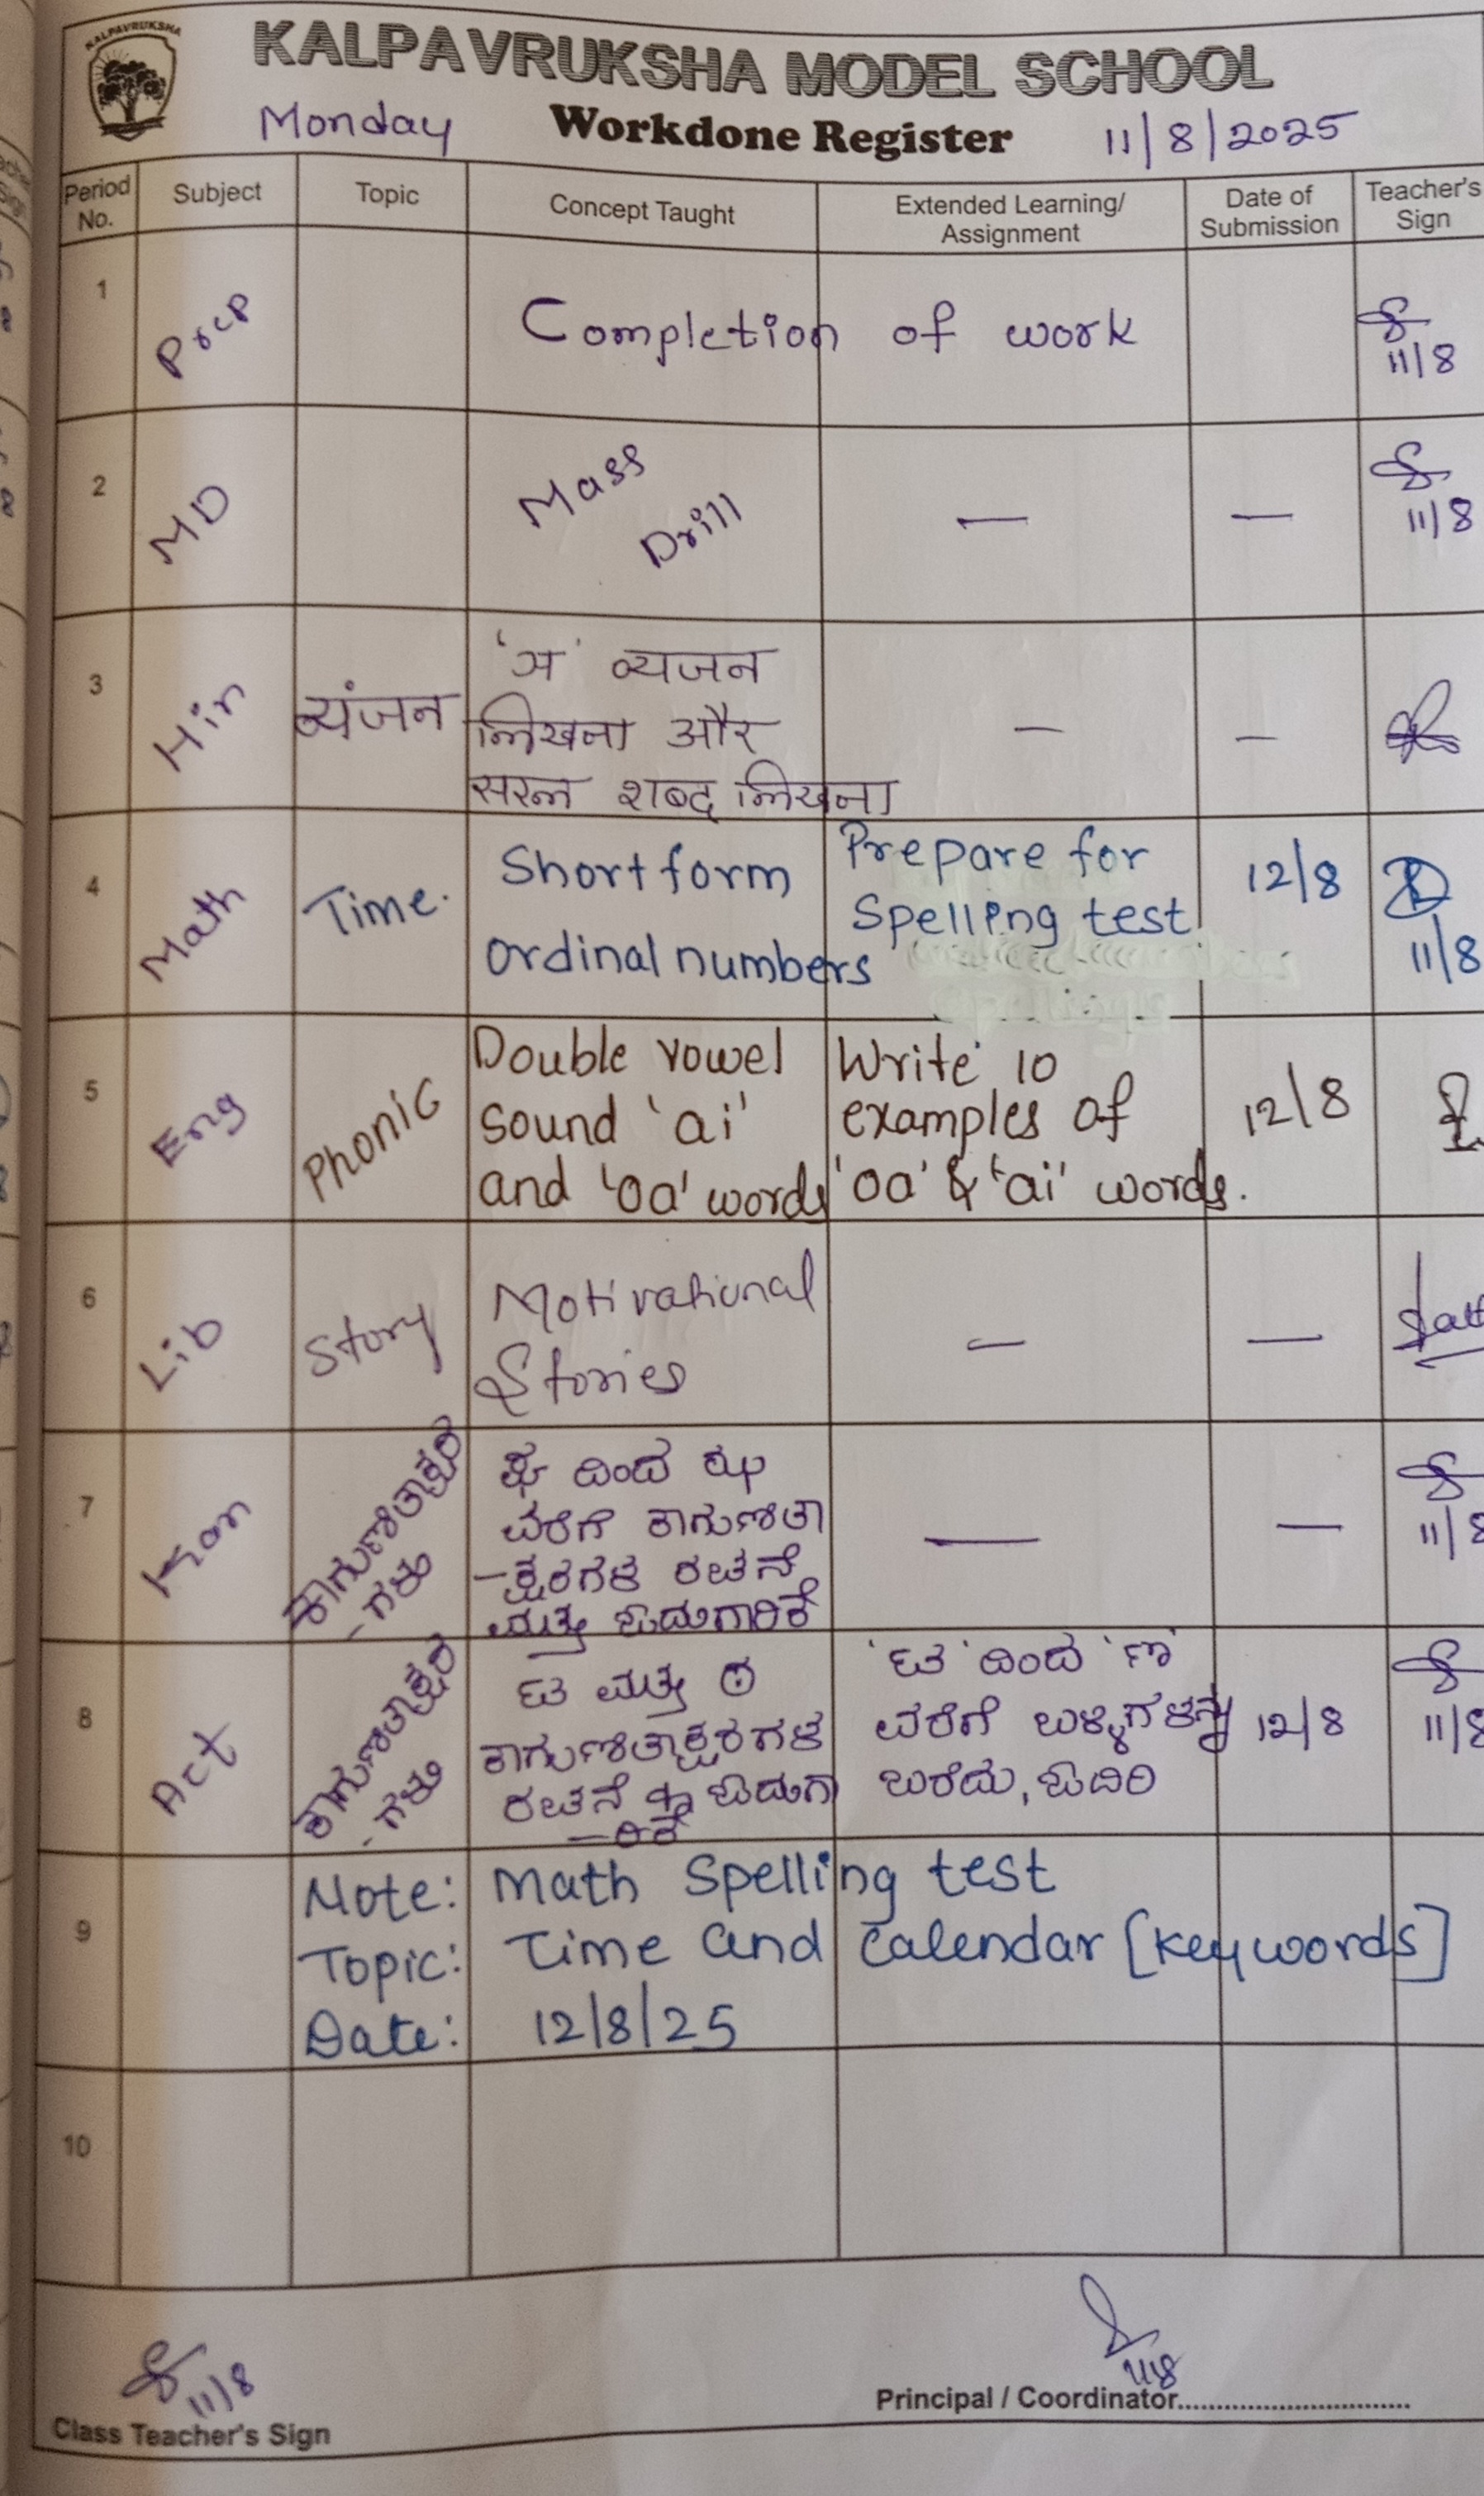 KALPAVRUKSHA
KALPAVRUKSHA MODEL SCHOOL
Monday Workdone Register 11/8/2025
Period No. Subject Topic Concept Taught Extended Learning/ Assignment Date of Submission Teacher's Sign
1 Prep Completion of work 11/8
2 MD Mass Drill — — 11/8
3 Hin व्यंजन 'ञ' व्यजन
लिखना और — —
सरल शब्द लिखना
4 Math Time. Short form Prepare for 12/8
ordinal numbers Spelling test 11/8
5 Eng Phonic Double vowel Write 10
sound 'ai' examples of 12/8
and 'oa' words 'oa' & 'ai' words.
6 Lib Story Motivational
Stories — —
7 Kan ಕಾಗುಣಿತಾಕ್ಷರ
-ಗಳು
ದಿಂದ ಝ
ವರೆಗೆ ಕಾಗುಣಿತಾ — — 11/8
-ಕ್ಷರಗಳ ರಚನೆ
ಮತ್ತು ಓದುಗಾರಿಕೆ
8 Act ಕಾಗುಣಿತಾಕ್ಷರ
-ಗಳು
ಟ ಮತ್ತು ಠ 'ಟ' ದಿಂದ 'ಣ'
ಕಾಗುಣಿತಾಕ್ಷರಗಳ ವರೆಗೆ ಬಳ್ಳಿಗಳನ್ನು 12/8 11/8
ರಚನೆ ಓದುಗಾ ಬರೆದು, ಓದಿರಿ
-ರಿಕೆ
9 Note: Math Spelling test
Topic: Time and Calendar [Key words]
Date: 12/8/25
10
11/8 11/8
Class Teacher's Sign Principal / Coordinator